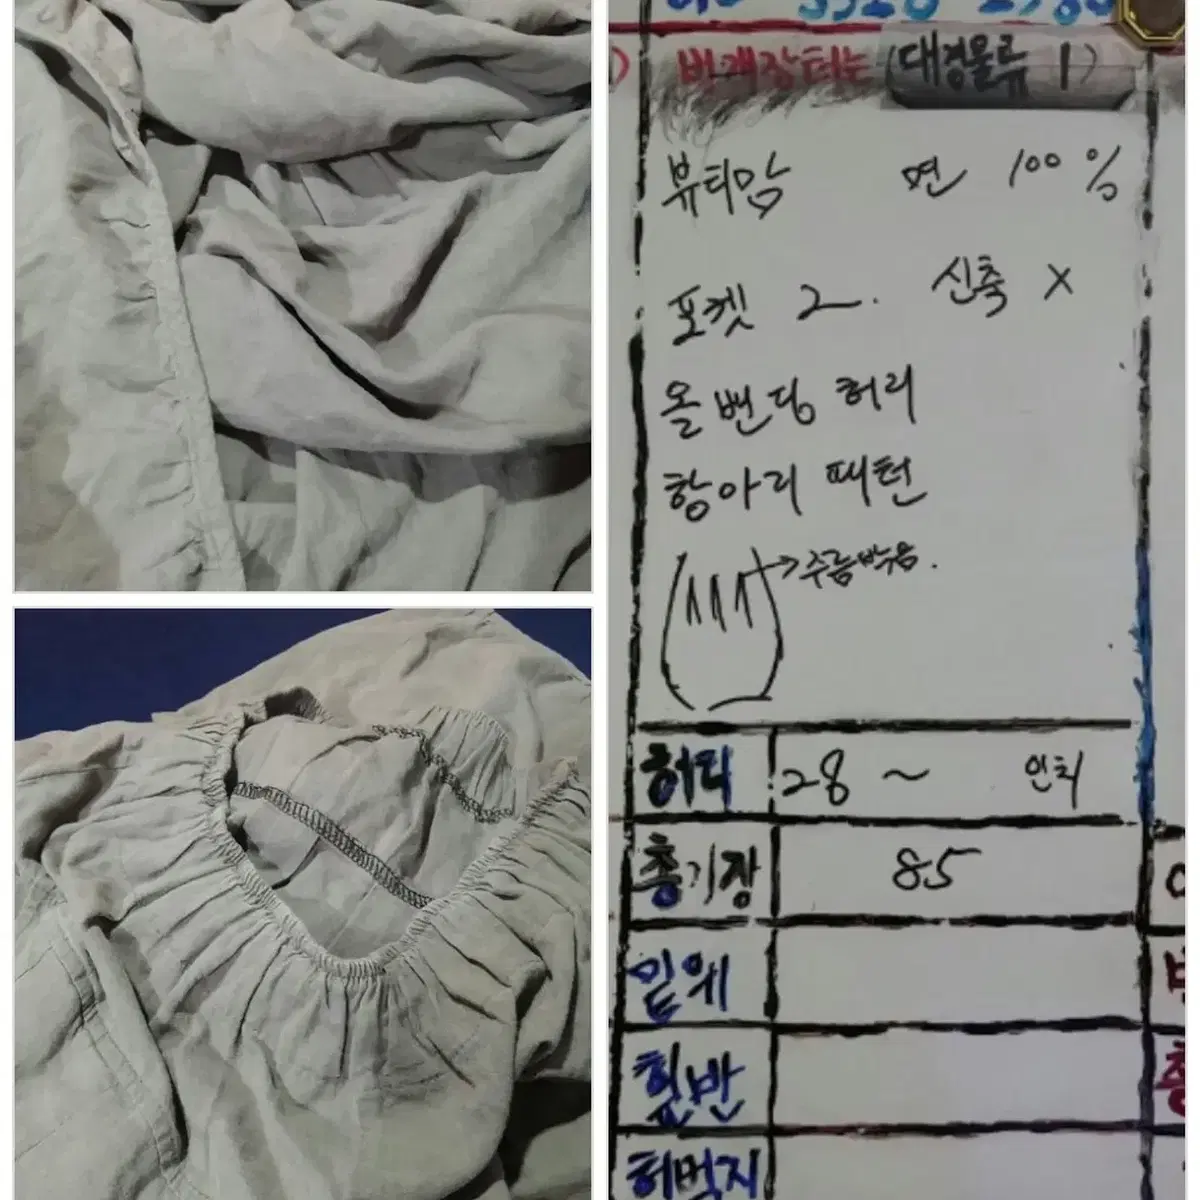 번개장터는 (대경물류 1)
뷰티맘 면 100 %
포켓 2. 신축 X
올밴딩 허리
항아리 패턴
→주름박음.
허리 28 ~ 인치
총기장 85
밑위
힙반
허벅지